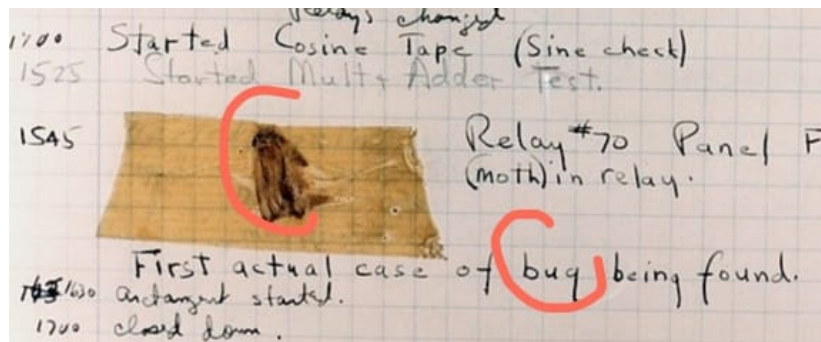 Relays changed
1700 Started Cosine Tape (Sine check)
1525 Started Mult+ Adder Test.
1545 Relay #70 Panel F
(moth) in relay.
First actual case of bug being found.
1630 arctangent started.
1700 closed down.